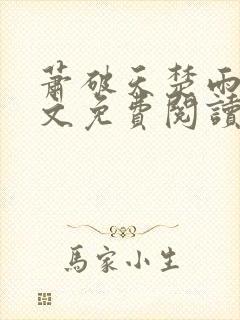 蕭破天楚雨
文免費閱讀
馬家小生